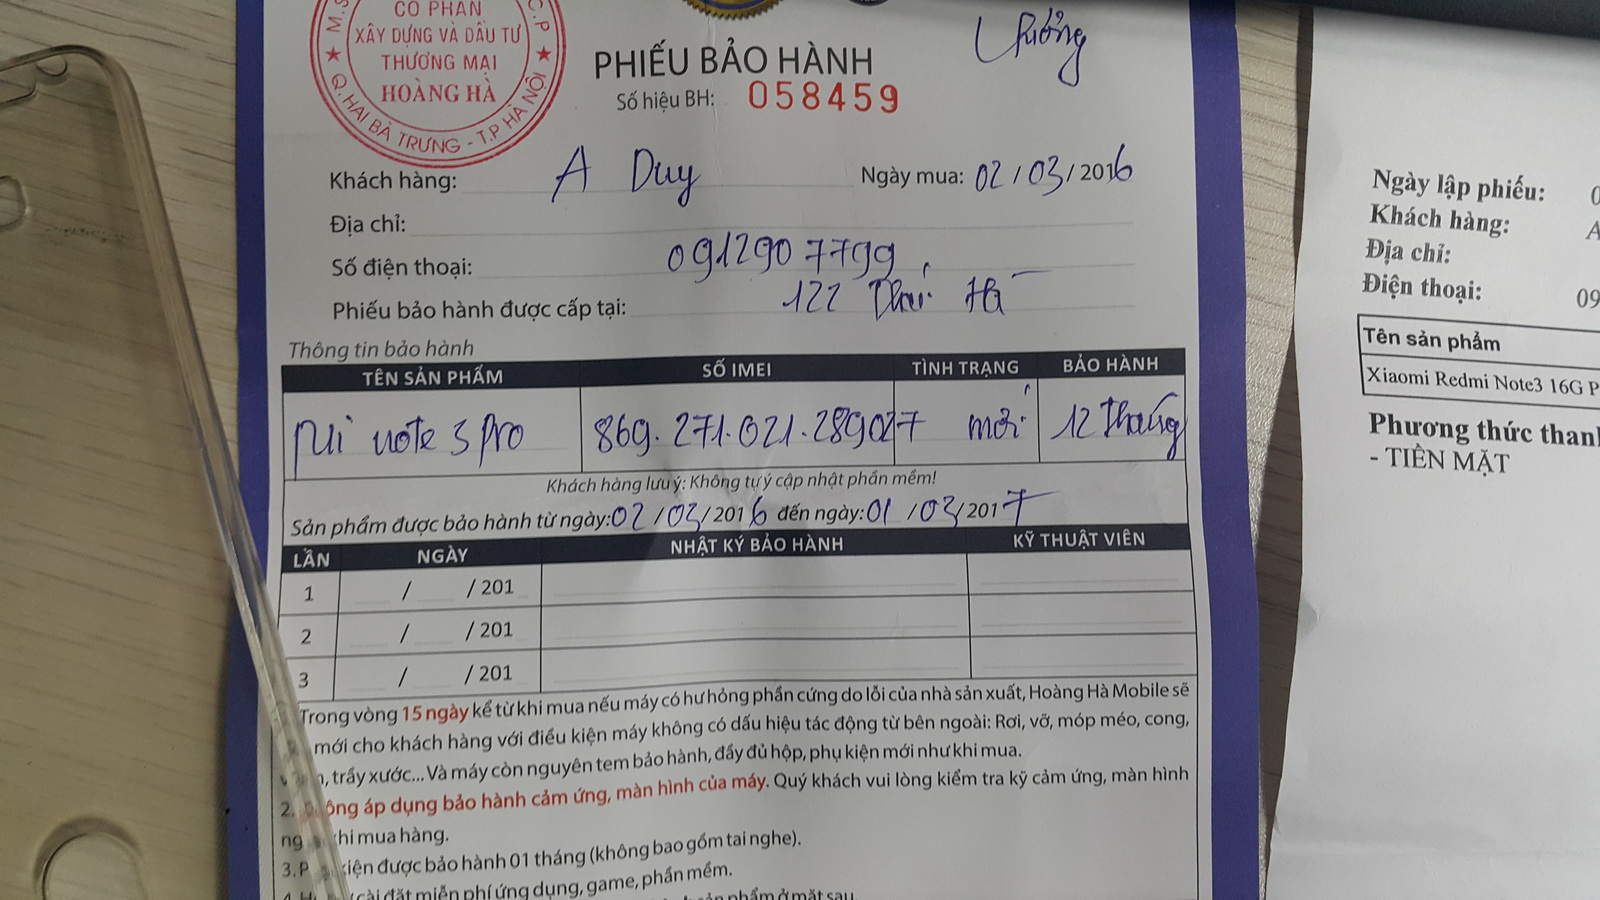 CỔ PHẦN
XÂY DỰNG VÀ ĐẦU TƯ
THƯƠNG MẠI
HOÀNG HÀ
Q. HAI BÀ TRƯNG - T.P HÀ NỘI
PHIẾU BẢO HÀNH
Số hiệu BH: 058459
Khách hàng: A Duy Ngày mua: 02/03/2016
Địa chỉ:
Số điện thoại: 0912907799
Phiếu bảo hành được cấp tại: 122 Thái Hà
Thông tin bảo hành
TÊN SẢN PHẨM SỐ IMEI TÌNH TRẠNG BẢO HÀNH
Mi note 3 pro 869.271.021.289027 mới 12 tháng
Khách hàng lưu ý: Không tự ý cập nhật phần mềm!
Sản phẩm được bảo hành từ ngày: 02/03/2016 đến ngày: 01/03/2017
LẦN NGÀY NHẬT KÝ BẢO HÀNH KỸ THUẬT VIÊN
1 / /201
2 / /201
3 / /201
Trong vòng 15 ngày kể từ khi mua nếu máy có hư hỏng phần cứng do lỗi của nhà sản xuất, Hoàng Hà Mobile sẽ
mới cho khách hàng với điều kiện máy không có dấu hiệu tác động từ bên ngoài: Rơi, vỡ, móp méo, cong,
trầy xước... Và máy còn nguyên tem bảo hành, đầy đủ hộp, phụ kiện mới như khi mua.
2. Không áp dụng bảo hành cảm ứng, màn hình của máy. Quý khách vui lòng kiểm tra kỹ cảm ứng, màn hình
khi mua hàng.
3. Phụ kiện được bảo hành 01 tháng (không bao gồm tai nghe).
cài đặt miễn phí ứng dụng, game, phần mềm.
sản phẩm ở mặt sau
Ngày lập phiếu: 0
Khách hàng: A
Địa chỉ:
Điện thoại: 09
Tên sản phẩm
Xiaomi Redmi Note3 16G P
Phương thức than
- TIỀN MẶT